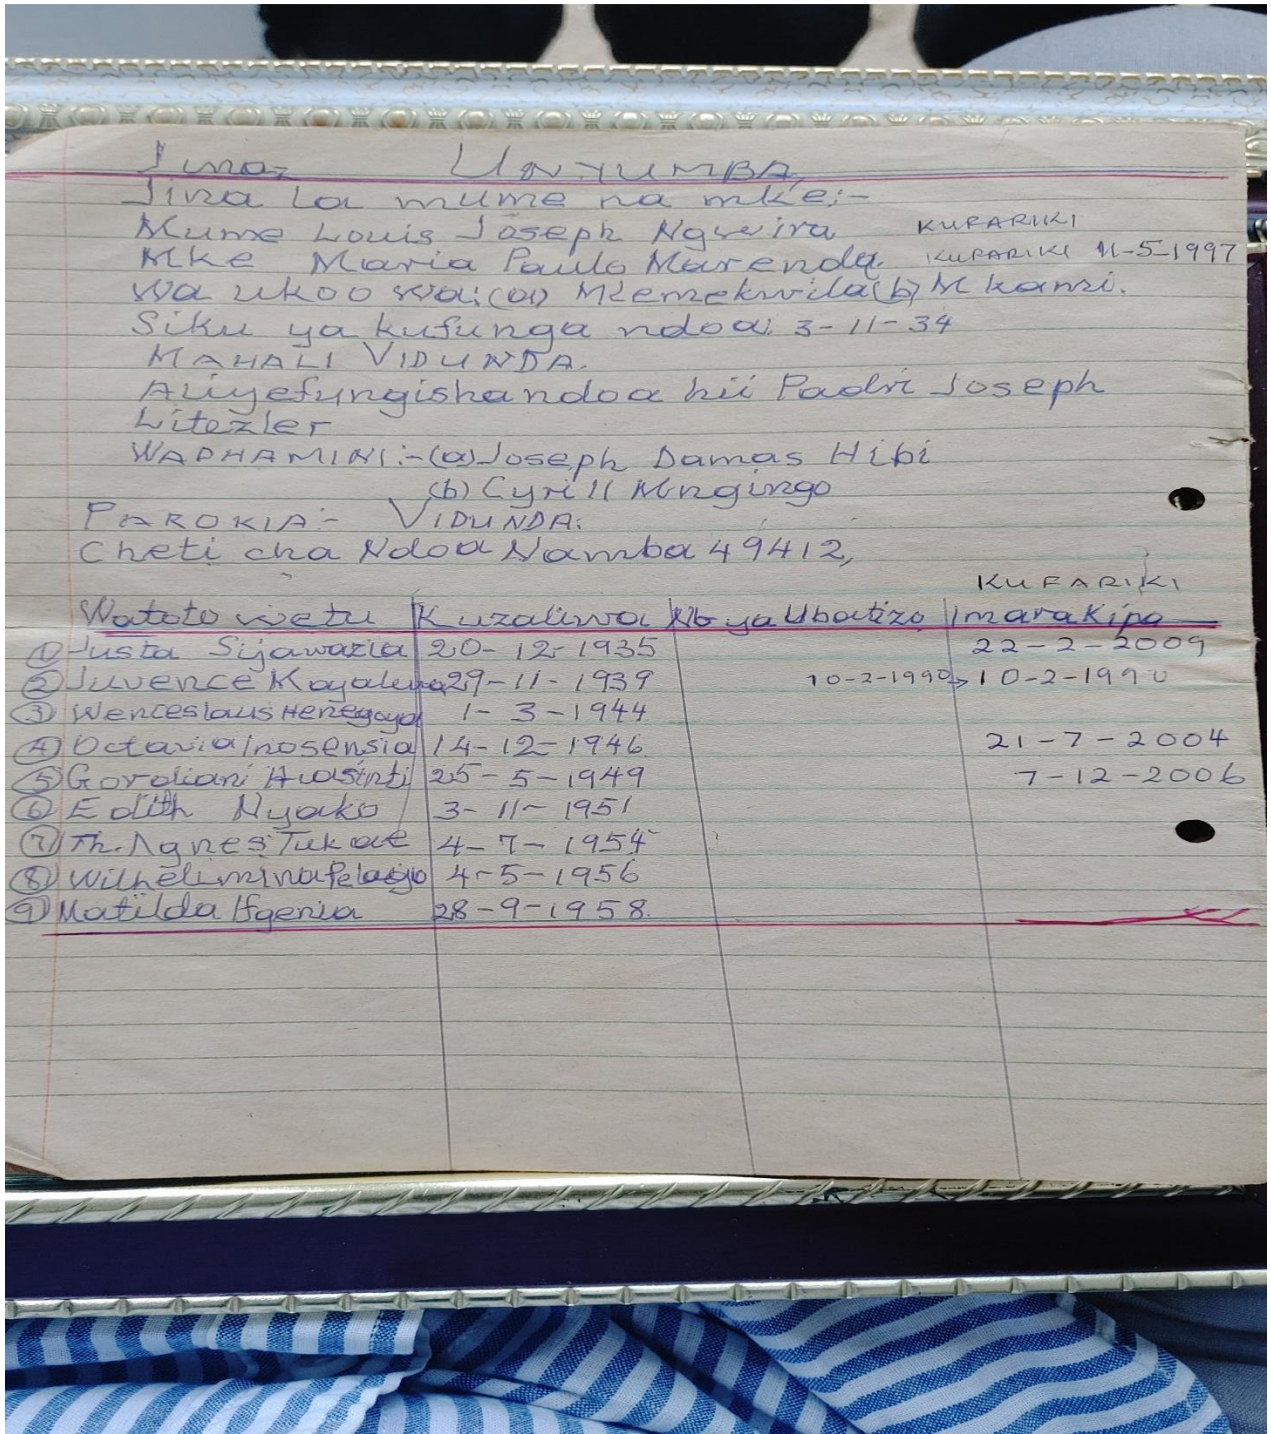 Jina UNYUMBA
Jina la mume na mke:-
Mume Louis Joseph Ngwira KUFARIKI
Mke Maria Paulo Marenda. KUFARIKI 11-5-1997
Wa ukoo wa: (a) Mlemekwila (b) Mkami.
Siku ya kufunga ndoa: 3-11-34
MAHALI VIDUNDA.
Aliyefungisha ndoa hii Padri Joseph
Litezler
WADHAMINI:- (a) Joseph Damas Hibi
(b) Cyrill Mngingo
PAROKIA:- VIDUNDA:
Cheti cha Ndoa Namba 49412,
KUFARIKI
Watoto wetu Kuzaliwa Nb ya Ubatizo Imara Kipa
1 Justa Sijawazia 20-12-1935 22-2-2009
2 Juvence 29-11-1939 10-2-1990 → 10-2-1990
3 Wenceslaus 1-3-1944
4 Octavia Inosensia 14-12-1946 21-7-2004
5 Gordiani 25-5-1949 7-12-2006
6 Edith Nyako 3-11-1951
7 Th. Agnes Tukae 4-7-1954
8 Wilhelimina Pelagio 4-5-1956
9 Matilda Ifgenia 28-9-1958.